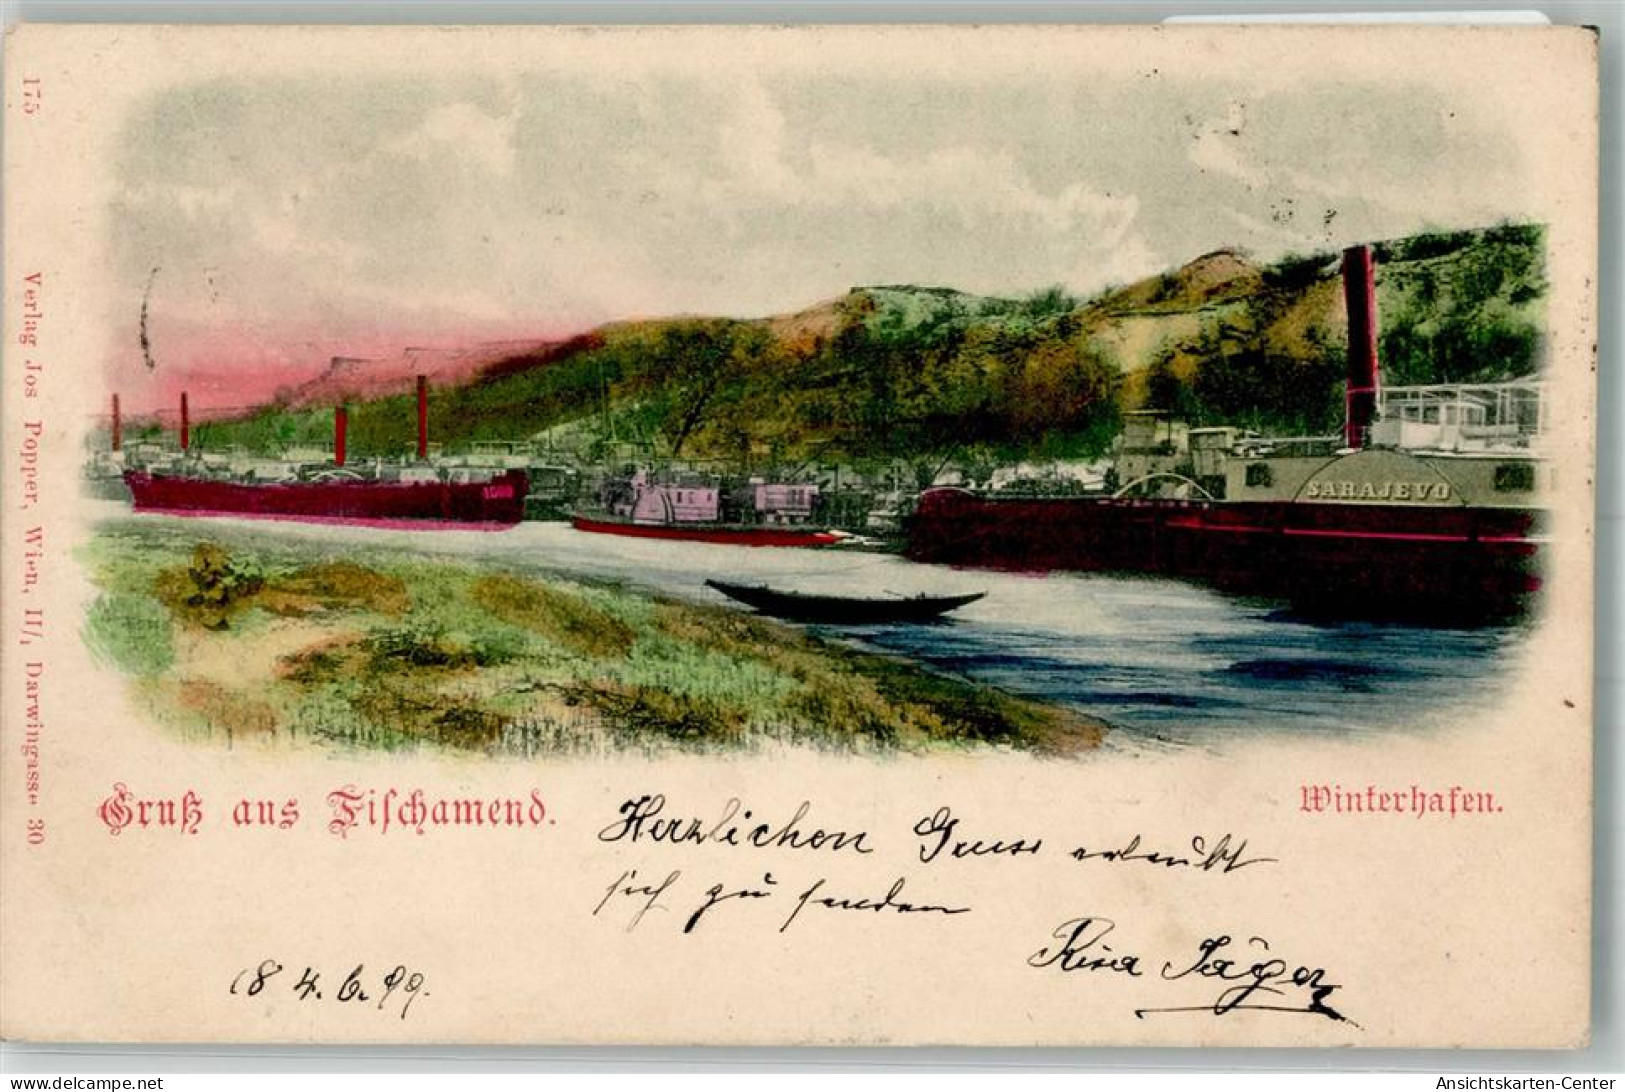 175
Verlag Jos Popper, Wien, II/1 Darwingasse 30
SARAJEVO
Gruß aus Fischamend.
Winterhafen.
Herzlichen Gruss erlaubt
sich zu senden
Risa Jäger
18 4. 6. 99.
delcampe.net
Ansichtskarten-Center